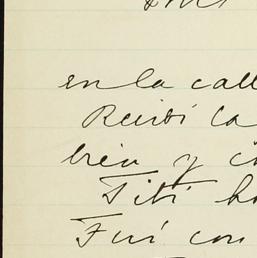 en la call
Recibí la
bien y c
Titi h
Fui con